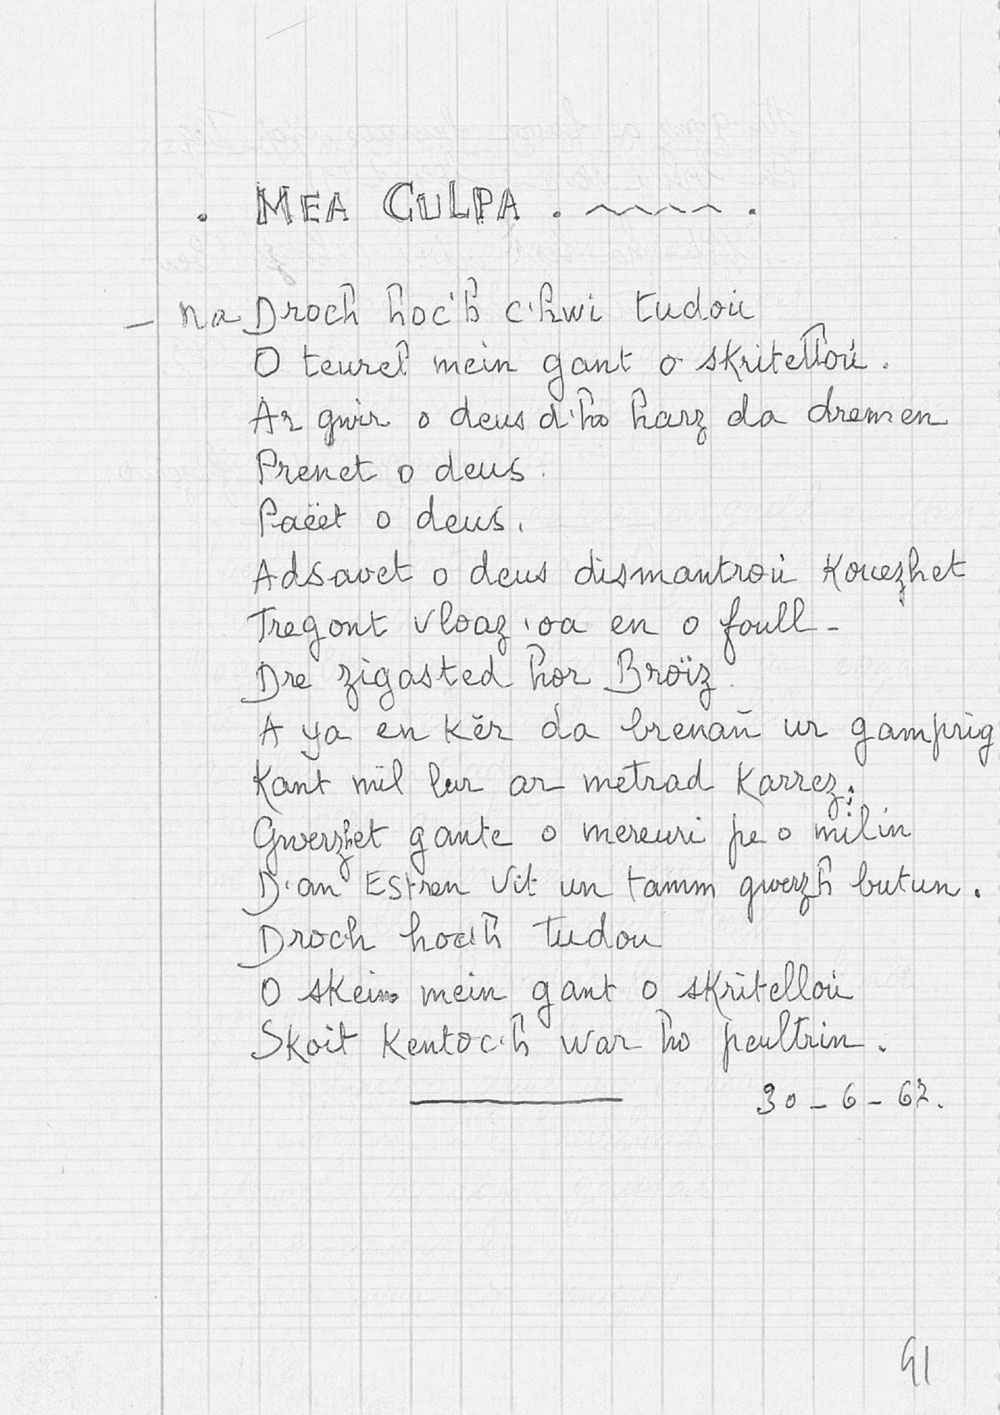 . MEA CULPA . ~~~~ .
– Na Droch hoc'h c'hwi tudoù
O teurel mein gant o skritelloù.
Ar gwir o deus d'ho harz da dremen
Prenet o deus.
Paëet o deus.
Adsavet o deus dismantroù Kouezhet
Tregont vloaz 'oa en o foull –
Dre zigasted hor Broïz.
A ya en Kêr da brenañ ur gamprig
Kant mil lur ar metrad Karrez;
Gwerzhet gante o mereuri pe o milin
D'an Estren vit un tamm gwerzh butun.
Droch hoc'h tudou
O skein mein gant o skritelloù
Skoit Kentoc'h war ho peultrin.
30 – 6 – 62.
91